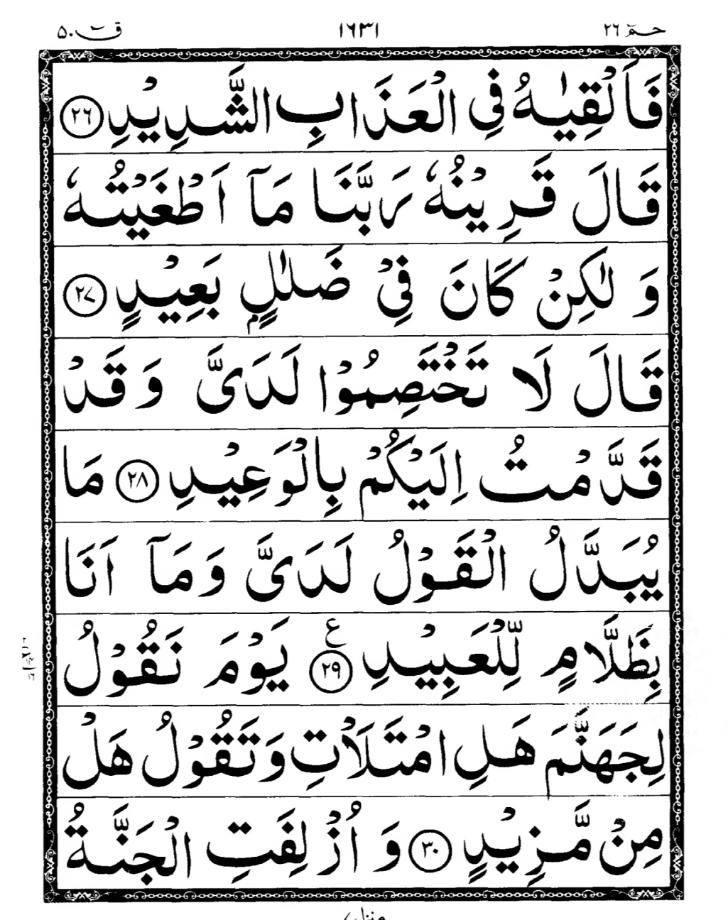 حٰمٓ ٢٦ ١٦٣١ قٓ ٥٠
فَاَلْقِيٰهُ فِى الْعَذَابِ الشَّدِيْدِ ﴿٢٦﴾
قَالَ قَرِيْنُهٗ رَبَّنَا مَاۤ اَطْغَيْتُهٗ
وَ لٰكِنْ كَانَ فِىْ ضَلٰلٍۭ بَعِيْدٍ ﴿٢٧﴾
قَالَ لَا تَخْتَصِمُوْا لَدَىَّ وَ قَدْ
قَدَّمْتُ اِلَيْكُمْ بِالْوَعِيْدِ ﴿٢٨﴾ مَا
يُبَدَّلُ الْقَوْلُ لَدَىَّ وَ مَاۤ اَنَا
بِظَلَّامٍ لِّلْعَبِيْدِ ﴿٢٩﴾ ع يَوْمَ نَقُوْلُ
لِجَهَنَّمَ هَلِ امْتَلَاْتِ وَ تَقُوْلُ هَلْ
مِنْ مَّزِيْدٍ ﴿٣٠﴾ وَ اُزْلِفَتِ الْجَنَّةُ